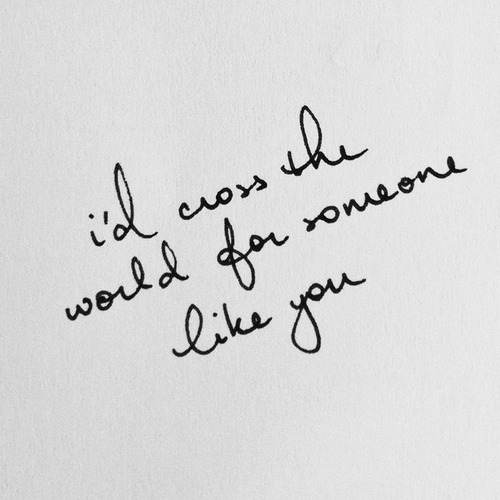 i'd cross the
world for someone
like you